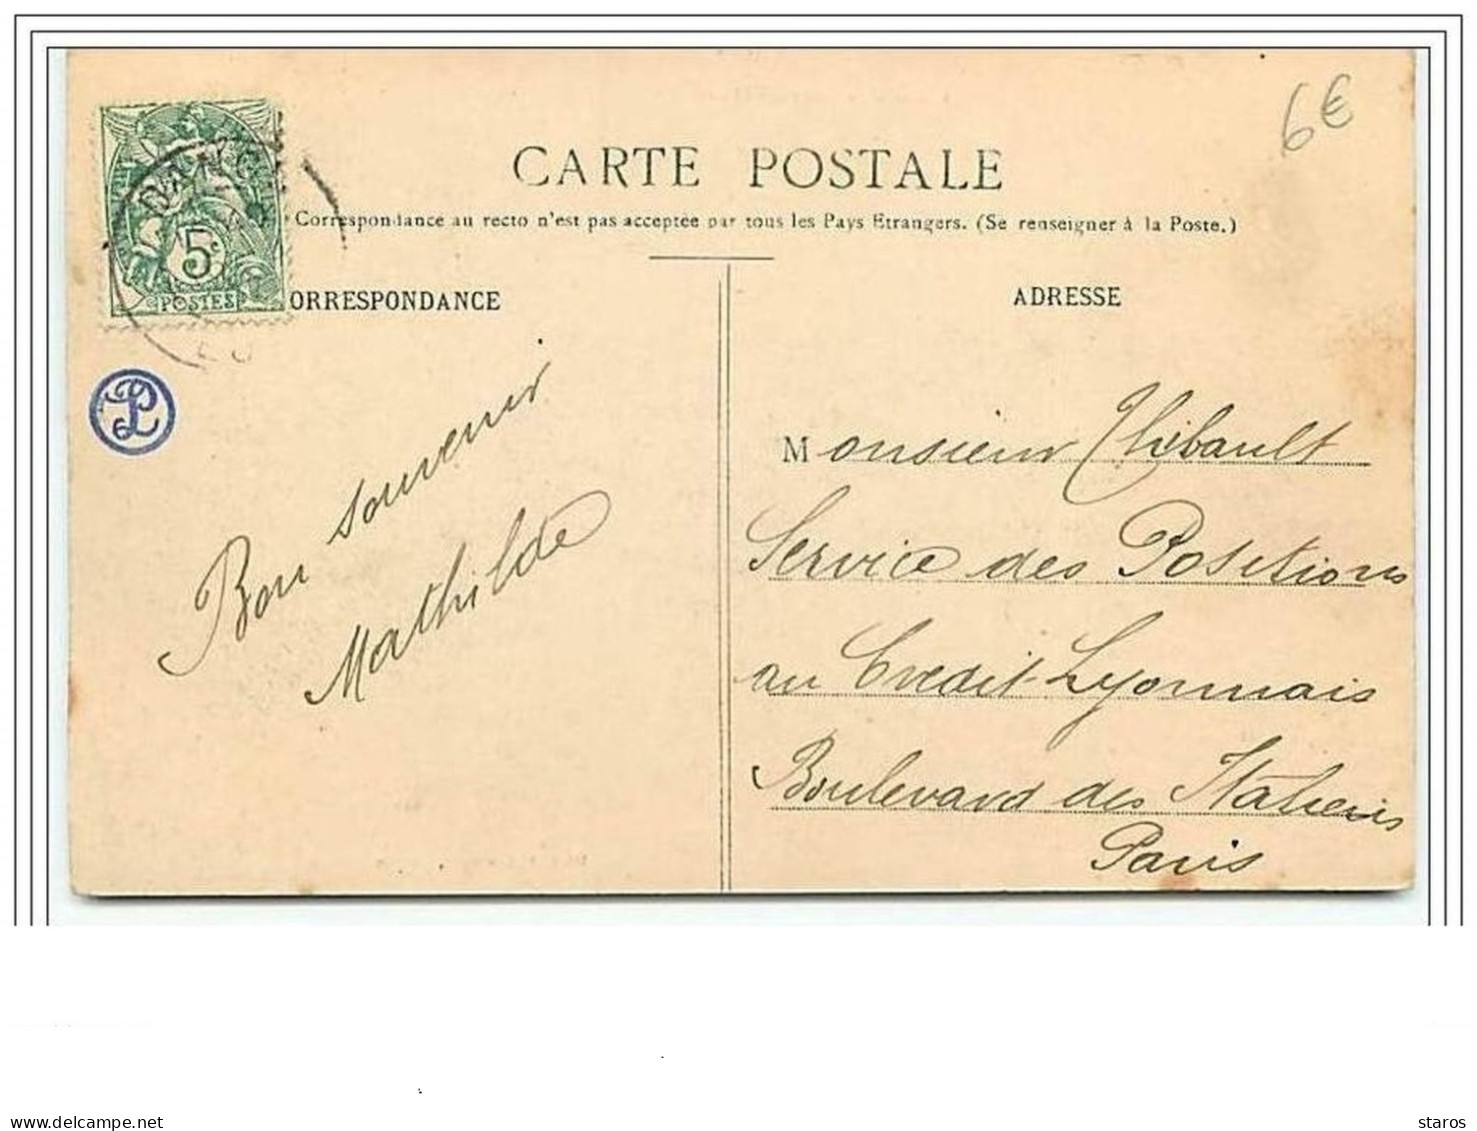 6€
CARTE POSTALE
Correspondance au recto n'est pas acceptée par tous les Pays Etrangers. (Se renseigner à la Poste.)
5c
POSTES
ORRESPONDANCE
ADRESSE
Bon souvenir
Mathilde
Monsieur Thibault
Service des Positions
au Credit Lyonnais
Boulevard des Italiens
Paris
www.delcampe.net
staros